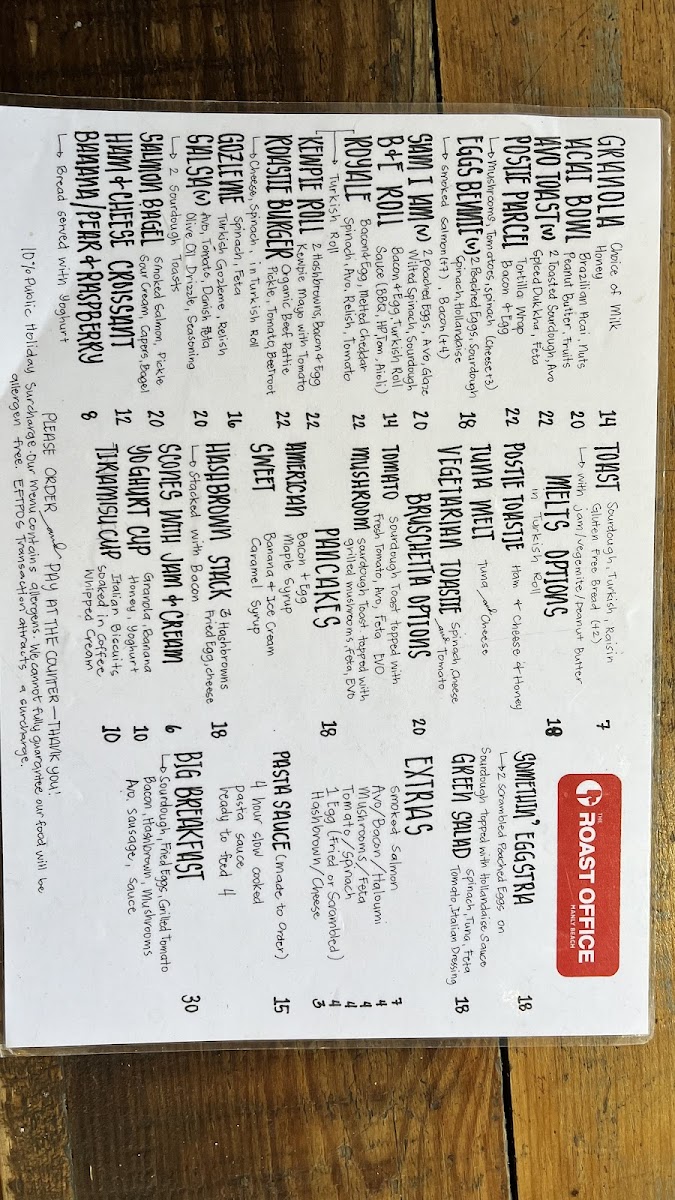 GRANOLA Choice of Milk 14
Honey
ACAI BOWL Brazilian Acai, Nuts 20
Peanut Butter, Fruits
AVO TOAST (V) 2 Toasted Sourdough, Avo 22
Spiced Dukkha, Feta
POSTIE PARCEL Tortilla Wrap 22
Bacon & Egg
↳ Mushrooms, Tomatoes, Spinach (cheese+3)
EGGS BENNIE (V) 2 Poached Eggs, Sourdough 18
Spinach, Hollandaise
↳ Smoked Salmon (+7), Bacon (+4)
SAM I AM (V) 2 Poached Eggs, Avo, Glaze 20
Wilted Spinach, Sourdough
B&E ROLL Bacon & Egg, Turkish Roll 14
Sauce (BBQ, HP, Tom, Aioli)
ROYALE Bacon & Egg, Melted Cheddar 22
Spinach, Avo, Relish, Tomato
↳ Turkish Roll
KEWPIE ROLL 2 Hashbrowns, Bacon & Egg 22
Kewpie Mayo with Tomato
ROASTIE BURGER Organic Beef Pattie 22
Pickle, Tomato, Beetroot
↳ Cheese, Spinach, in Turkish Roll
GOZLEME Spinach, Feta 16
Turkish Gozleme, Relish
SALSA (V) Avo, Tomato, Danish Feta 20
Olive Oil Drizzle, Seasoning
↳ 2 Sourdough Toasts
SALMON BAGEL Smoked Salmon, Pickle 20
Sour Cream, Capers, Bagel
HAM & CHEESE CROISSANT 12
BANANA/PEAR & RASPBERRY 8
↳ Bread served with Yoghurt
TOAST Sourdough, Turkish, Raisin 7
Gluten Free Bread (+2)
↳ with Jam/vegemite/peanut Butter
MELTS OPTIONS 18
in Turkish Roll
POSTIE TOASTIE Ham & Cheese & Honey
TUNA MELT Tuna and Cheese
VEGETARIAN TOASTIE Spinach, Cheese
and Tomato
BRUSCHETTA OPTIONS 20
TOMATO Sourdough Toast topped with
Fresh Tomato, Avo, Feta EVO
MUSHROOM Sourdough Toast topped with
grilled mushrooms, feta, EVO
PANCAKES 18
AMERICAN Bacon & Egg
Maple Syrup
SWEET Banana & Ice Cream
Caramel Syrup
HASHBROWN STACK 3 Hashbrowns 18
Fried Egg, cheese
↳ Stacked with Bacon
SCONES WITH JAM & CREAM 6
YOGHURT CUP Granola, Banana 10
Honey, Yoghurt
TIRAMISU CUP Italian Biscuits 10
Soaked in Coffee
Whipped Cream
THE
ROAST OFFICE
MANLY BEACH
SOMETHIN' EGGSTRA 18
↳ 2 Scrambled Poached Eggs on
Sourdough Topped with Hollandaise Sauce
GREEN SALAD Spinach, Tuna, Feta 18
Tomato, Italian Dressing
EXTRAS
Smoked Salmon 7
Avo/Bacon/Haloumi 4
Mushrooms/Feta 4
Tomato/Spinach 4
1 Egg (Fried or Scrambled) 4
Hashbrown/Cheese 3
PASTA SAUCE (made to order) 15
4 hour slow cooked
pasta sauce
ready to feed 4
BIG BREAKFAST 30
↳ Sourdough, Fried Eggs, Grilled Tomato
Bacon, Hashbrown, Mushrooms
Avo, Sausage, Sauce
PLEASE ORDER and PAY AT THE COUNTER — THANK YOU!
10% Public Holiday Surcharge. Our menu contains allergens. We cannot fully guarantee our food will be
allergen free. EFTPOS Transaction attracts a surcharge.